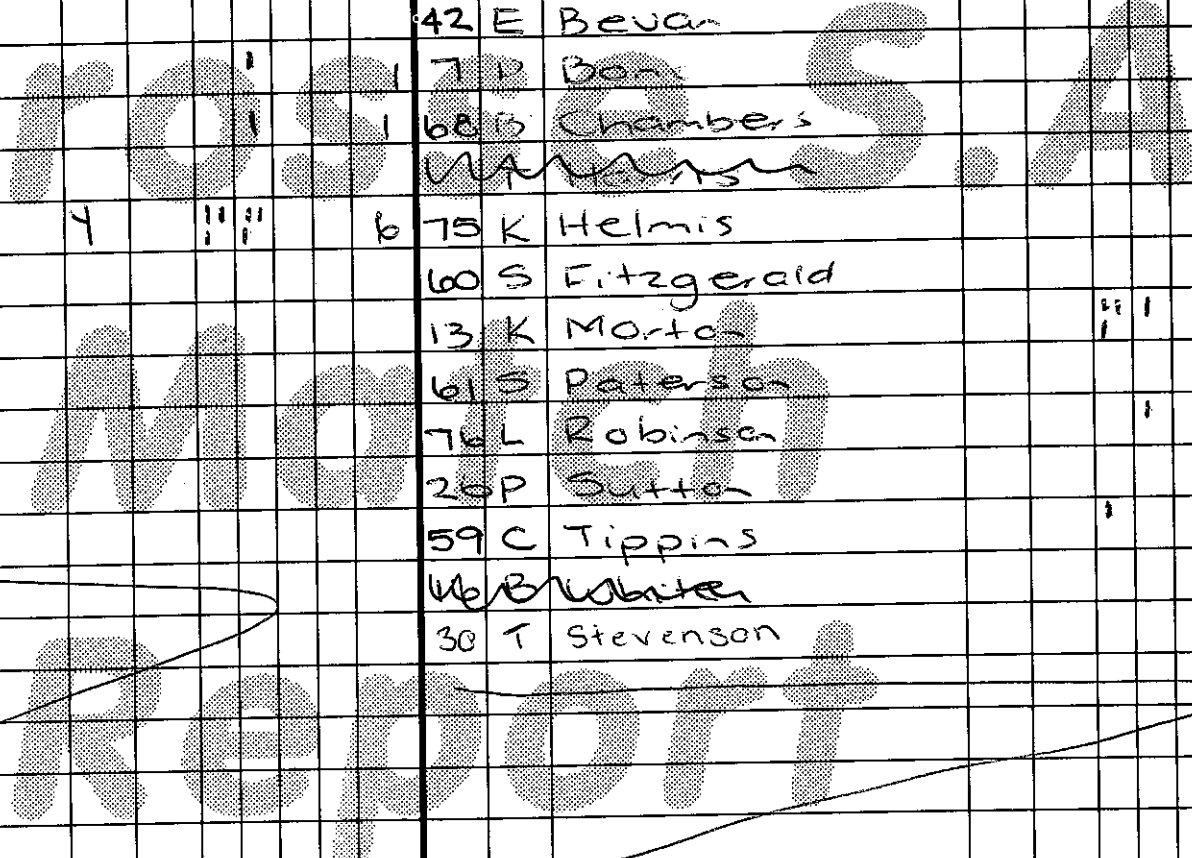 42 E Bevan
1 7
1 68 B Chambers
6 75 K Helmis
60 S Fitzgerald
13 K Morton
61 S Paterson
76 L Robinson
26 P Sutton
59 C Tippins
30 T Stevenson
ros a e S.A
Match
Report